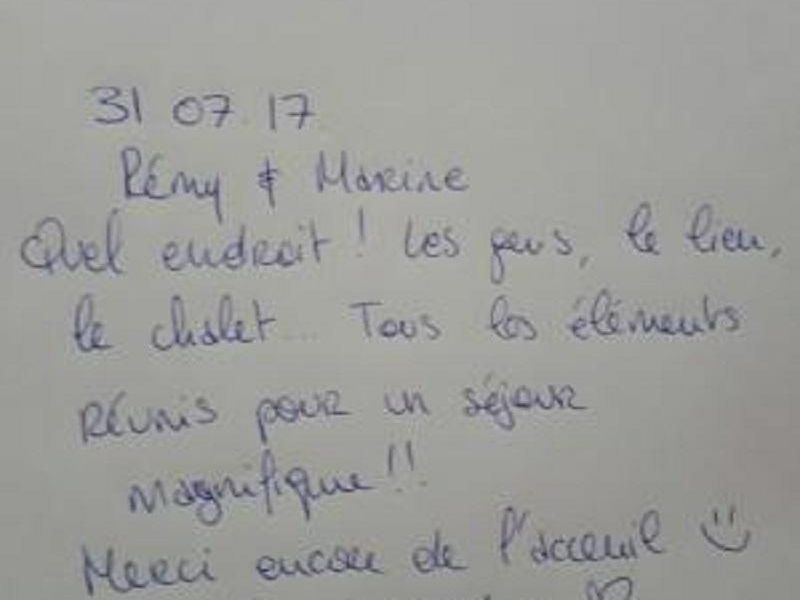 31 07 17
Rémy & Marine
Quel endroit ! Les gens, le lieu,
le chalet... Tous les éléments
réunis pour un séjour
magnifique !!
Merci encore de l'acceuil